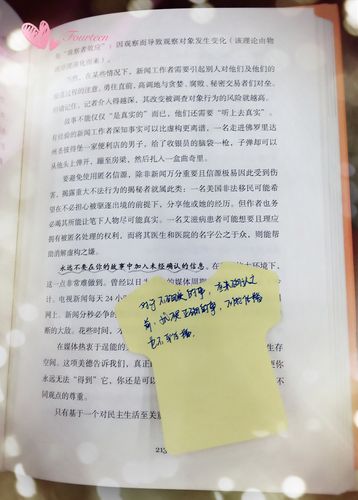 Fourteen
和“观察者效应”：因观察而导致观察对象发生变化（该理论由物
当然，在某些情况下，新闻工作者需要引起别人对他们及他们的
报道过程的注意。勇往直前，高调地与贪婪、腐败、秘密交易者们对垒。
但请记住，记者介入得越深，其改变被调查对象行为的风险就越高。
故事不能仅仅“是真实的”而已，他们还需要“听上去真实”。
有经验的新闻工作者深知事实可以比虚构更离谱，一名走进佛罗里达
州圣彼得堡一家便利店的男子，给了收银员的脑袋一枪，子弹却可以
从他头上弹开，蹦至房梁，然后扎入一盒曲奇里。
要避免使用匿名信源，除非新闻万分重要且信源极易因此受到伤
害，揭露重大不法行为的揭秘者就属此类；一名美国非法移民可能希
望在不必担心被驱逐出境的前提下，分享他或她的经历。但作者也务
必竭其所能让笔下人物尽可能真实。一名艾滋病患者可能想要且理应
拥有被匿名处理的权利，而将其医生和医院的名字公之于众，则能帮
助消解虚构之嫌。
永远不要在你的故事中加入未经确认的信息。在
环境下，
这一点非常难做到。曾经以日
的媒体周期
计。电视新闻每天24小
网上。新闻分秒必争的
断的大放。花些时间，
在媒体热衷于逞能的
生存
空间。这项美德告诉我们，真正
要你
永远无法“得到”它，你还是可以
同观点的尊重。
只有基于一个对民主生活至关
213
对于不确定的事，在未确认之
前，
不能传播